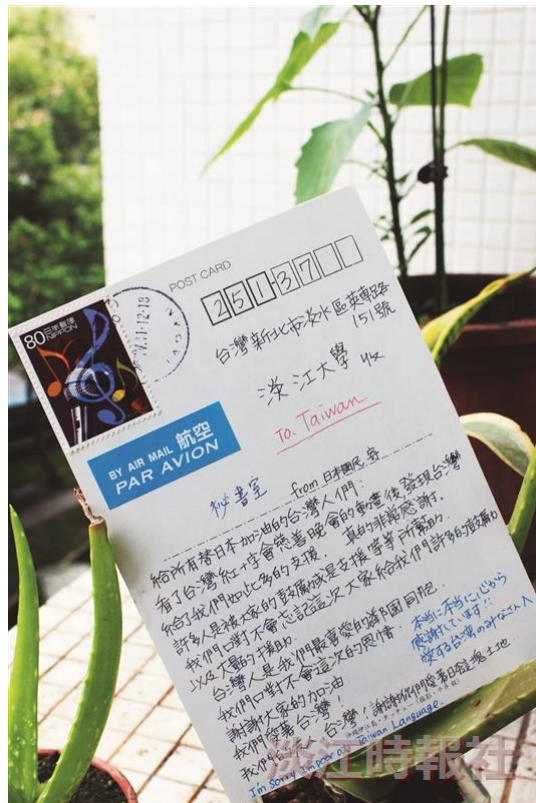 POST CARD
25137
80
NIPPON
台灣新北市淡水區英專路
151號
淡江大學 收
To. Taiwan
BY AIR MAIL 航空
PAR AVION
秘書室
from 日本國民
給所有替日本加油的台灣人們:
看了台灣紅十字會慈善晚會的動畫後發現台灣
給了我們如此多的支援. 真的非常感謝了.
許多人是接大家的鼓厲或是支援等等所幫助.
我們口對不會忘記這次大家給我們許多的鼓勵
以及大量的援助.
台灣人是我們最喜愛的諸國同胞.
我們口對不會這次的恩情.
謝謝大家的加油
我們愛著台灣!
台灣!謝謝你們愛著日這塊土地
本当に本当に心から
感謝しています!!
愛する台湾のみなさんへ
I'm sorry I'm poor at Taiwan Language.
淡江時報社